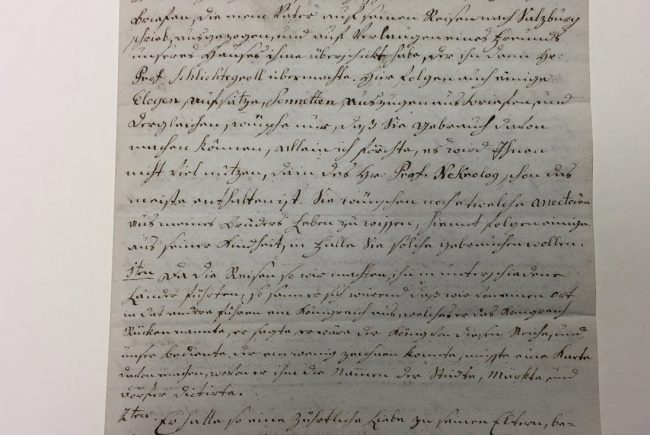 Briefen, die mein Vater auf seinen Reisen nach Salzburg
schrieb, ausgezogen, und auf Verlangen eines Freunds
unseres Hauses ihme überschikt habe, der ihn dann Hr:
Prof. Schlichtegroll übermachte. Hier folgen auch einige
Elogen, aufsätze, Sonnetten auszugen aus briefen, und
dergleichen, wünsche nur, daß Sie gebrauch davon
machen können, allein ich förchte, es wird Ihnen
nicht viel nützen, dann des Hr: Prof: Nekrolog, schon das
meiste enthalten ist. Sie wünschen noch etwelche anectoden
aus meines bruders Leben zu wissen, hiemit folgen einige
aus seiner Kindheit, in Falle Sie solche gebrauchen wollen:
1ten Da die Reisen so wir machten, ihn in unterschiedene
Länder führten, so sann er sich würend daß wir von einen ort
in das andere führen ein Königreich aus welches er das Königreich
Rücken nannte, er sagte, er wäre der König von diesen Reiche, und
unser bediente, der ein wenig zeichnen konnte, mußte eine Karte
davon machen, worzu er ihm die Nammen der Städte, Märkte, und
Dörfer dictirte.
2ten Er hatte so eine zährtliche Liebe zu seinen Eltern, be-